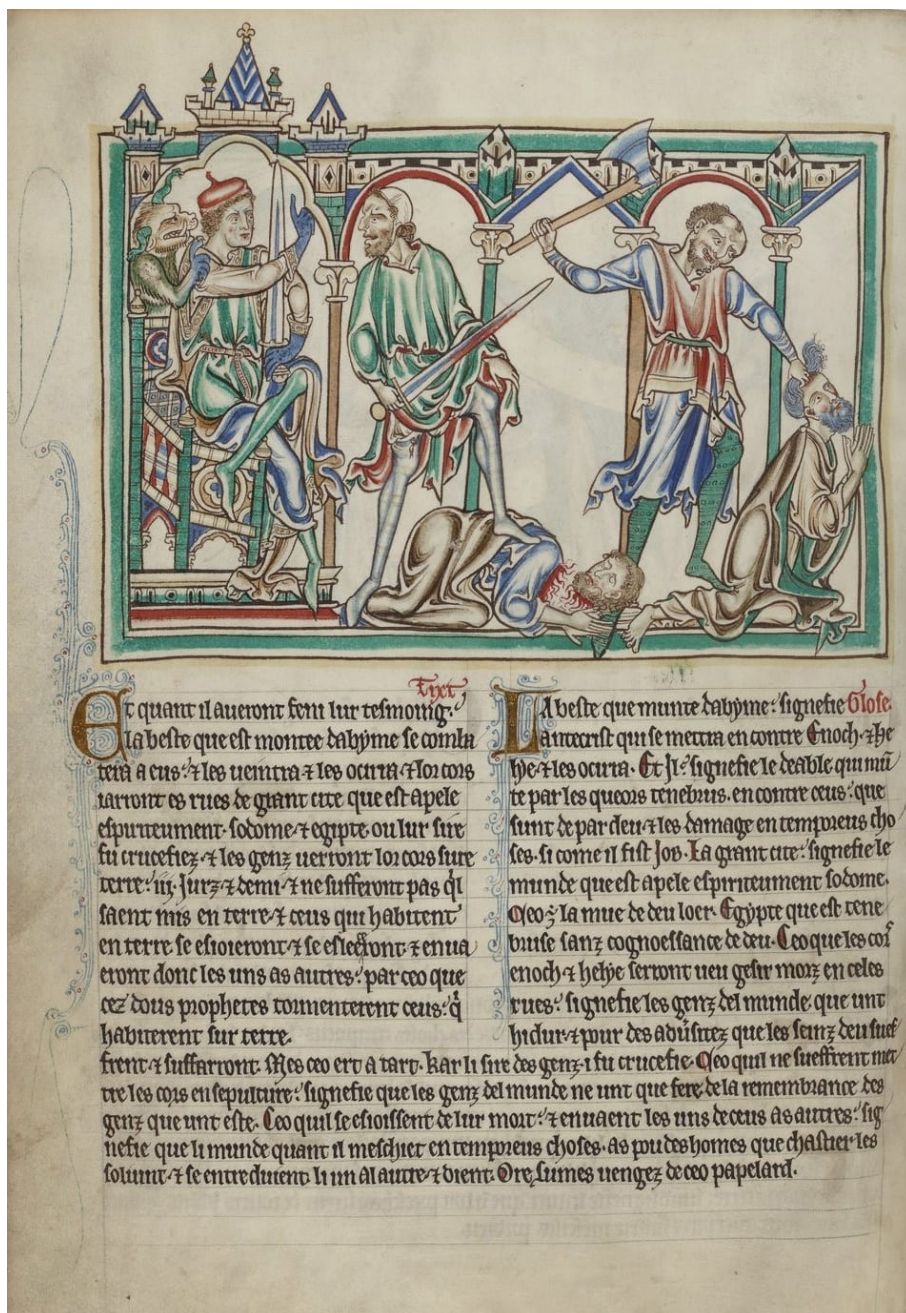 Tixt
Et quant il aueront feni lur tesmoing.
la beste que est montee dabýme se comba
tera a eus: ⁊ les ueintra ⁊ les ocirra ⁊ lor cors
iarront es rues de grant cite que est apele
espiriteument sodome ⁊ egipte ou lur sire
fu crucefiez. ⁊ les genz uerront lor cors sure
terre: iij. Jurz ⁊ demi ⁊ ne sufferont pas q̇l
saent mis en terre ⁊ ceus qui habitent
en terre se esioieront ⁊ se ⁊ enua
eront donc les uns as autres: par ceo que
cez dous prophetes tormenterent ceus: q̇
habiterent sur terre.
Glose.
La beste que munte dabýme: signefie
lantecrist qui se mettra en contre Enoch ⁊ he
lýe ⁊ les ocirra. Et Ji: signefie le deable qui mū
te par les queors tenebrus. en contre ceus: que
sunt de par deu ⁊ les damage en temporeus cho
ses. si come il fist Job. La grant cite: signefie le
munde que est apele espiriteument sodome.
Ceo ÷ la mue de deu loer. Egýpte que est tene
bruse sanz cognoessance de deu. Ceo que les cors
enoch ⁊ helýe serront ueu gesir morz en celes
rues: signefie les genz del munde que unt
hidur ⁊ pour des aduersitez que les seinz deu suef
frent ⁊ suffarront. Mes ceo ert a tart. kar li sire des genz i fu crucefie. Ceo quil ne sueffrent met
tre les cors en sepulture: signefie que les genz del munde ne unt que fere de la remembrance des
genz que unt este. Ceo quil se esioissent de lur mort: ⁊ enuaent les uns de ceus as autres: sig
nefie que li munde quant il meschiet en temporeus choses. as poudes homes que chastier les
soluint ⁊ se entreduient li un al autre ⁊ dient. Ore sumes uengez de ceo papelard.